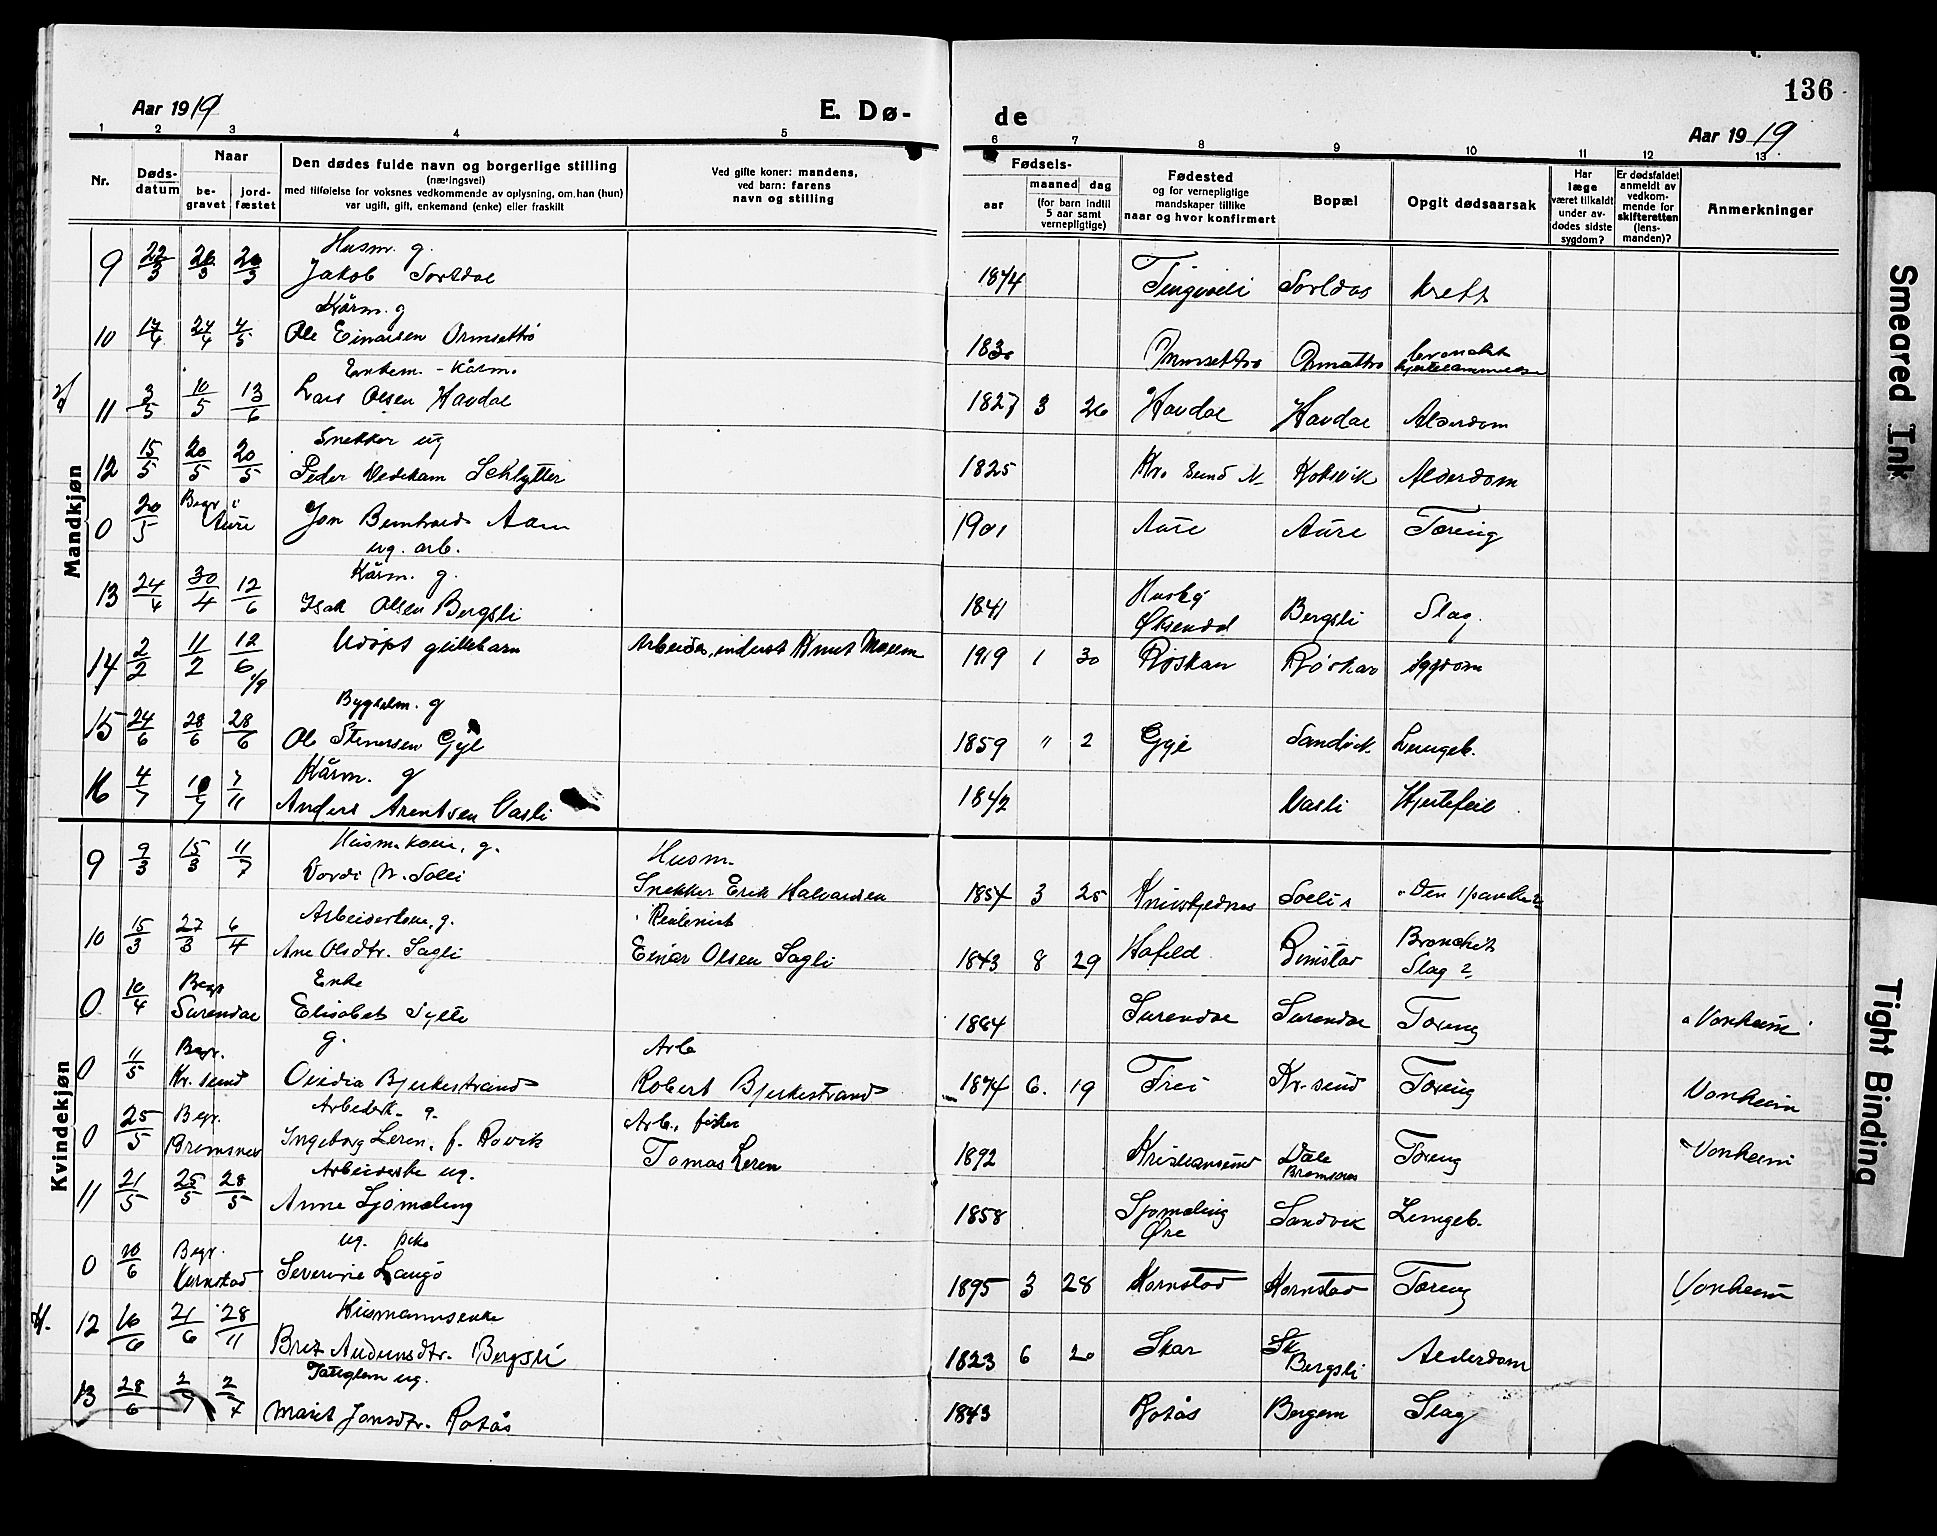 136
Aar 1919
E. Dø-
de
Aar 1919
1 2 3 4 5 6 7 8 9 10 11 12 13
Nr.
Døds-
datum
Naar
be-
gravet
jord-
fæstet
Den dødes fulde navn og borgerlige stilling
(næringsvei)
med tilføielse for voksnes vedkommende av oplysning, om han (hun)
var ugift, gift, enkemand (enke) eller fraskilt
Ved gifte koner: mandens,
ved barn: farens
navn og stilling
Fødsels-
aar
maaned dag
(for barn indtil
5 aar samt
vernepligtige)
Fødested
og for vernepligtige
mandskaper tillike
naar og hvor konfirmert
Bopæl
Opgit dødsaarsak
Har
læge
været tilkaldt
under av-
dødes sidste
sygdom?
Er dødsfaldet
anmeldt av
vedkom-
mende for
skifteretten
(lens-
manden)?
Anmerkninger
Mandkjøn
Husm. g.
9 22/3 26/3 26/3 Jakob 1874 Kreft
Kårm. g
10 17/4 24/4 4/5 Ole Einarsen Ormsettrø 183
Enkem. - Kårm.
11 3/5 10/5 13/6 Lars Olsen Havdal 1827 3 26 Havdal Havdal Alderdom
Snekker ug
12 15/5 20/5 20/5 Peder Vedekam Schlytter 1825 Kr. sund N. Koksvik Alderdom
0 20/5 Begr i Aure Jon Bernhard Aam 1901 Aure Aure Tæring
ug. arb.
Kårm. g.
13 24/4 30/4 12/6 Isak Olsen Bergsli 1841 Husby Øksendal Bergsli Slag.
14 2/2 11/2 12/6 Udøpt guttebarn Arbeider, inderst Knut Moeem 1919 1 30 Røskar Røskar Sygdom
g
15 24/6 28/6 28/6 Ole Stenersen Gyl 1859 " 2 Gyl Sandvik Lungeb.
Kårm. g
16 4/7 10/7 7/11 Anders Arentsen Vasli 1842 Vasli Hjertefeil
Kvindekjøn
Husm.kone, g. Husm.
9 9/3 15/3 11/7 Snekker Erik Halvardsen 1854 3 25 Soeli
Arbeiderkone, g.
10 15/3 27/3 6/4 Ane Olsdtr. Sagli Einar Olsen Sagli 1843 8 29 Hafeld Rimstad Bronchit
Slag?
Enke
0 10/4 Begr Surendal Elisabet Sylte 1864 Surendal Surendal Tæring "Vonheim"
g. Arb
0 11/5 Begr. Kr. sund Ovidia Bjerkestrand Robert Bjerkestrand 1874 6. 19 Frei Kr. sund Tæring Vonheim
Arbeiderk. g. Arb., fisker
0 25/5 Begr. Bremsnes Ingeborg Leren, f. Rovik Tomas Leren 1892 Kristiansund Dale
Bremsnes Tæring "Vonheim
Arbeiderske ug.
11 21/5 25/5 28/5 Anne Sjømæling 1858 Sjømæling
Øre Sandvik Lungeb.
ug. pike
0 10/6 Begr. Kornstad Severine Langø 1895 3 28 Kornstad Kornstad Tæring Vonheim
Husmannsenke
12 16/6 21/6 28/11 Brit Audunsdtr. Bergsli 1823 6 20 Skar Sk
Bergsli Alderdom
ug.
13 28/6 2/7 2/7 Marit Jonsdtr. Rotås 1843 Rotås Bergem Slag
Smeared Ink
Tight Binding